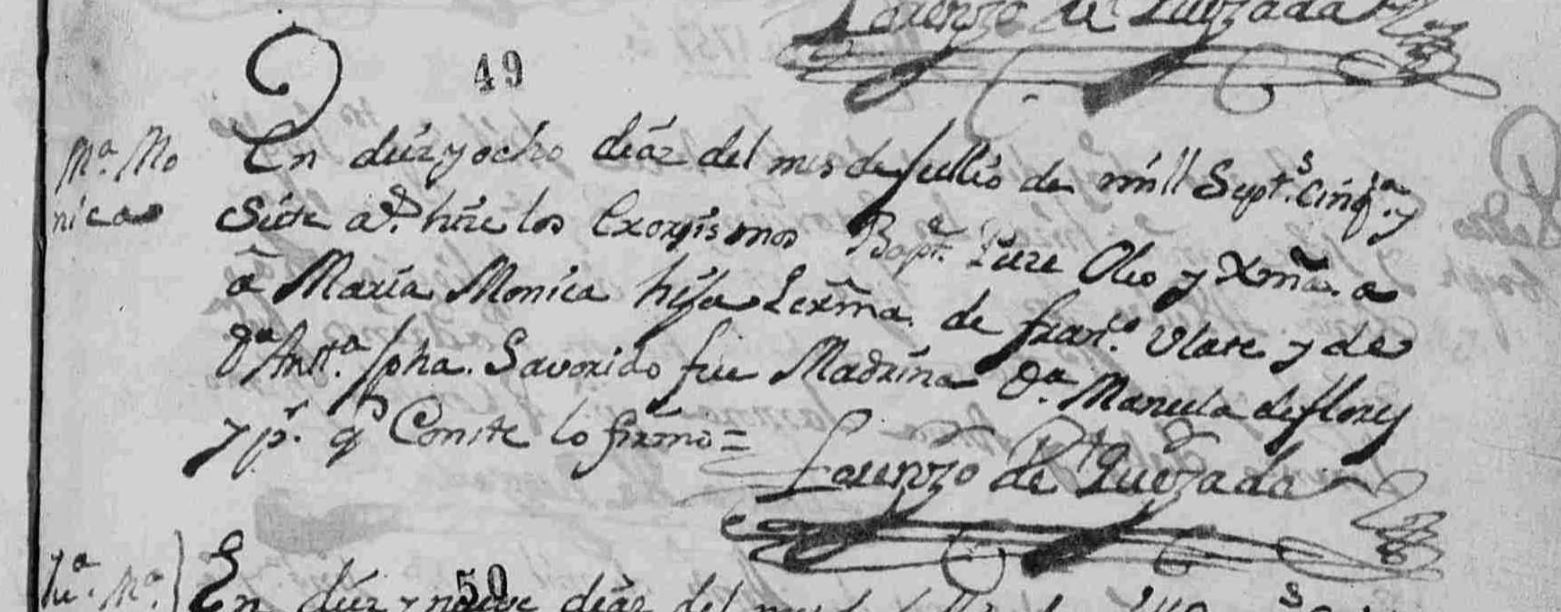 Lorenzo de Quezada
49
Mª. Mo
nica
En diez y ocho diaz del mes de Jullio de mill Septs. Cinqª. y
Siete as. hize los Exorzismos Baptª. Puze Oleo y Xma. a
â Maria Monica hija Lexma. de franco. Vlate y de
Dª Anttª. Jpha. Savorido fue Madrina Dª. Manuela de flores
y pr. q Conste lo firmo =
Lorenzo de Quezada
50
En diez y nueve diaz del mes